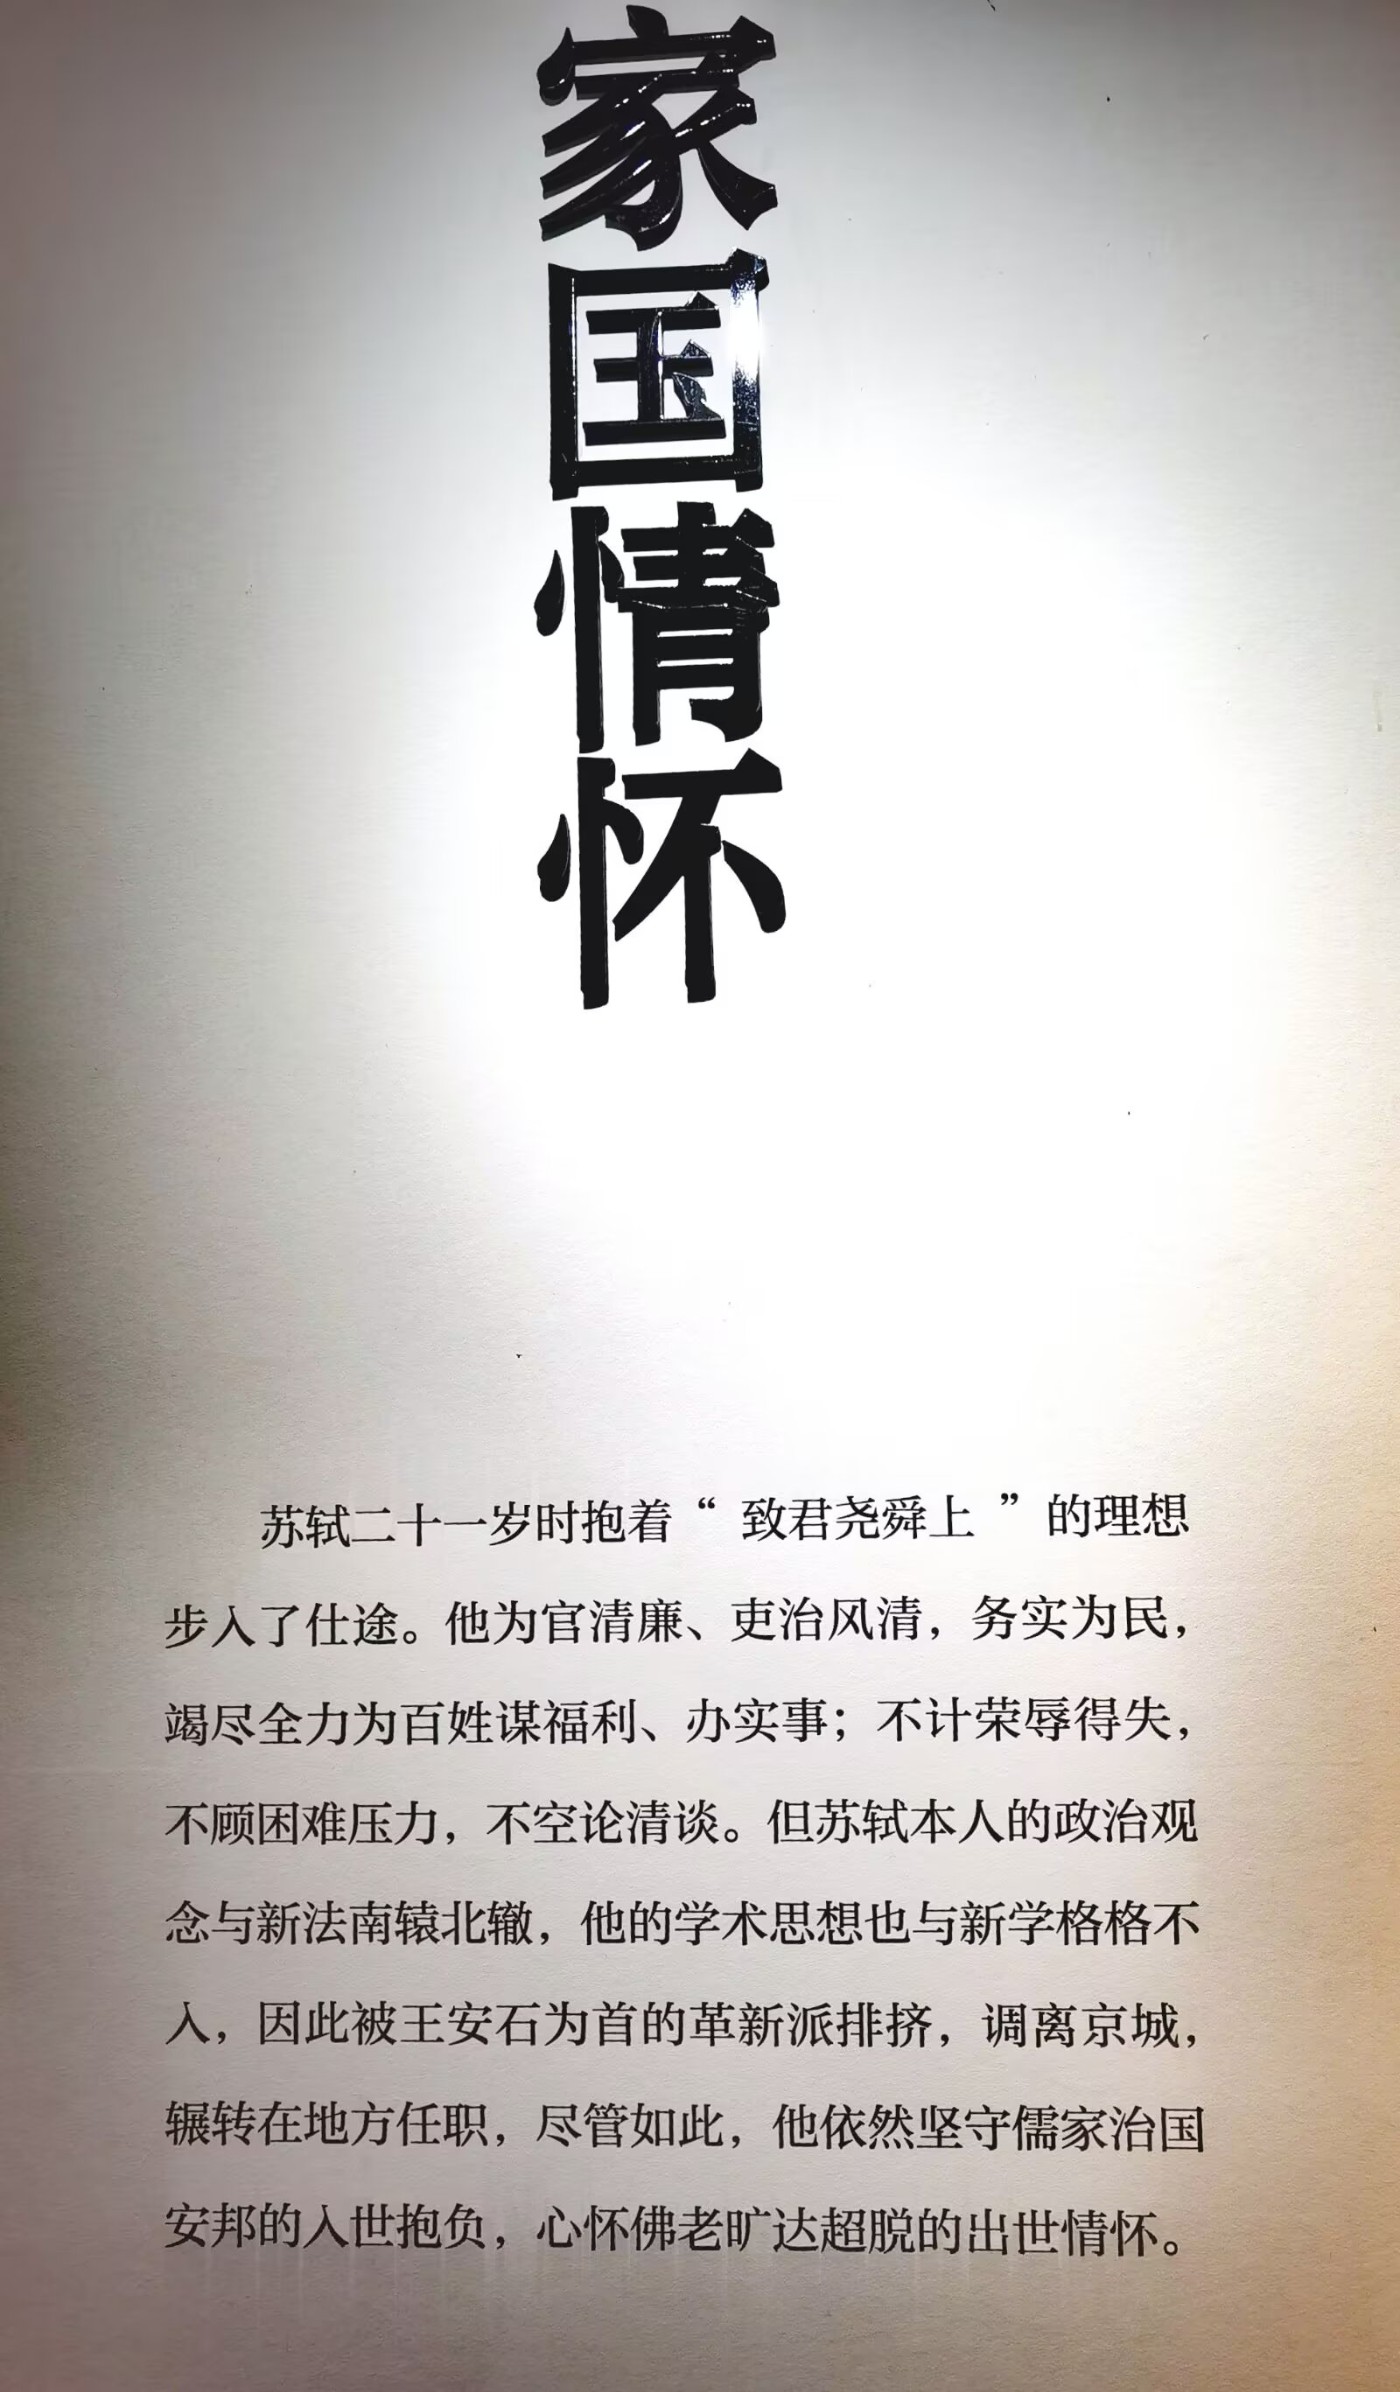 家国情怀
苏轼二十一岁时抱着“致君尧舜上”的理想
步入了仕途。他为官清廉、吏治风清，务实为民，
竭尽全力为百姓谋福利、办实事；不计荣辱得失，
不顾困难压力，不空论清谈。但苏轼本人的政治观
念与新法南辕北辙，他的学术思想也与新学格格不
入，因此被王安石为首的革新派排挤，调离京城，
辗转在地方任职，尽管如此，他依然坚守儒家治国
安邦的入世抱负，心怀佛老旷达超脱的出世情怀。